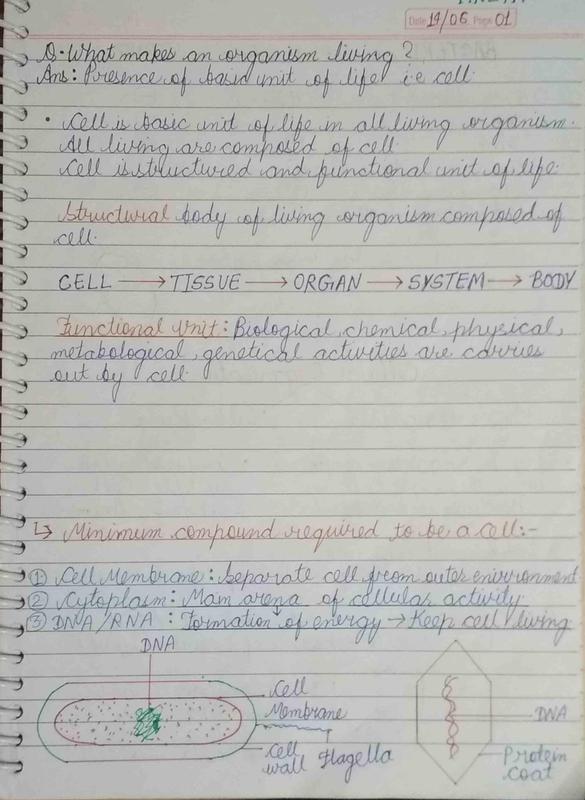 Date 19/06 Page 01
Q. What makes an organism living?
Ans: Presence of basic unit of life i.e cell.
• Cell is basic unit of life in all living organism.
All living are composed of cell.
Cell is structured and functional unit of life.
Structural body of living organism composed of
cell.
CELL → TISSUE → ORGAN → SYSTEM → BODY
Functional Unit: Biological, chemical, physical,
metabological, genetical activities are carries
out by cell.
↳ Minimum compound required to be a cell:-
① Cell Membrane: Separate cell from outer envirronment
② Cytoplasm: Main arena of cellular activity.
③ DNA/RNA: Formation of energy → Keep cell living
DNA
Cell
Membrane
Cell
wall
Flagella
DNA
Protein
coat